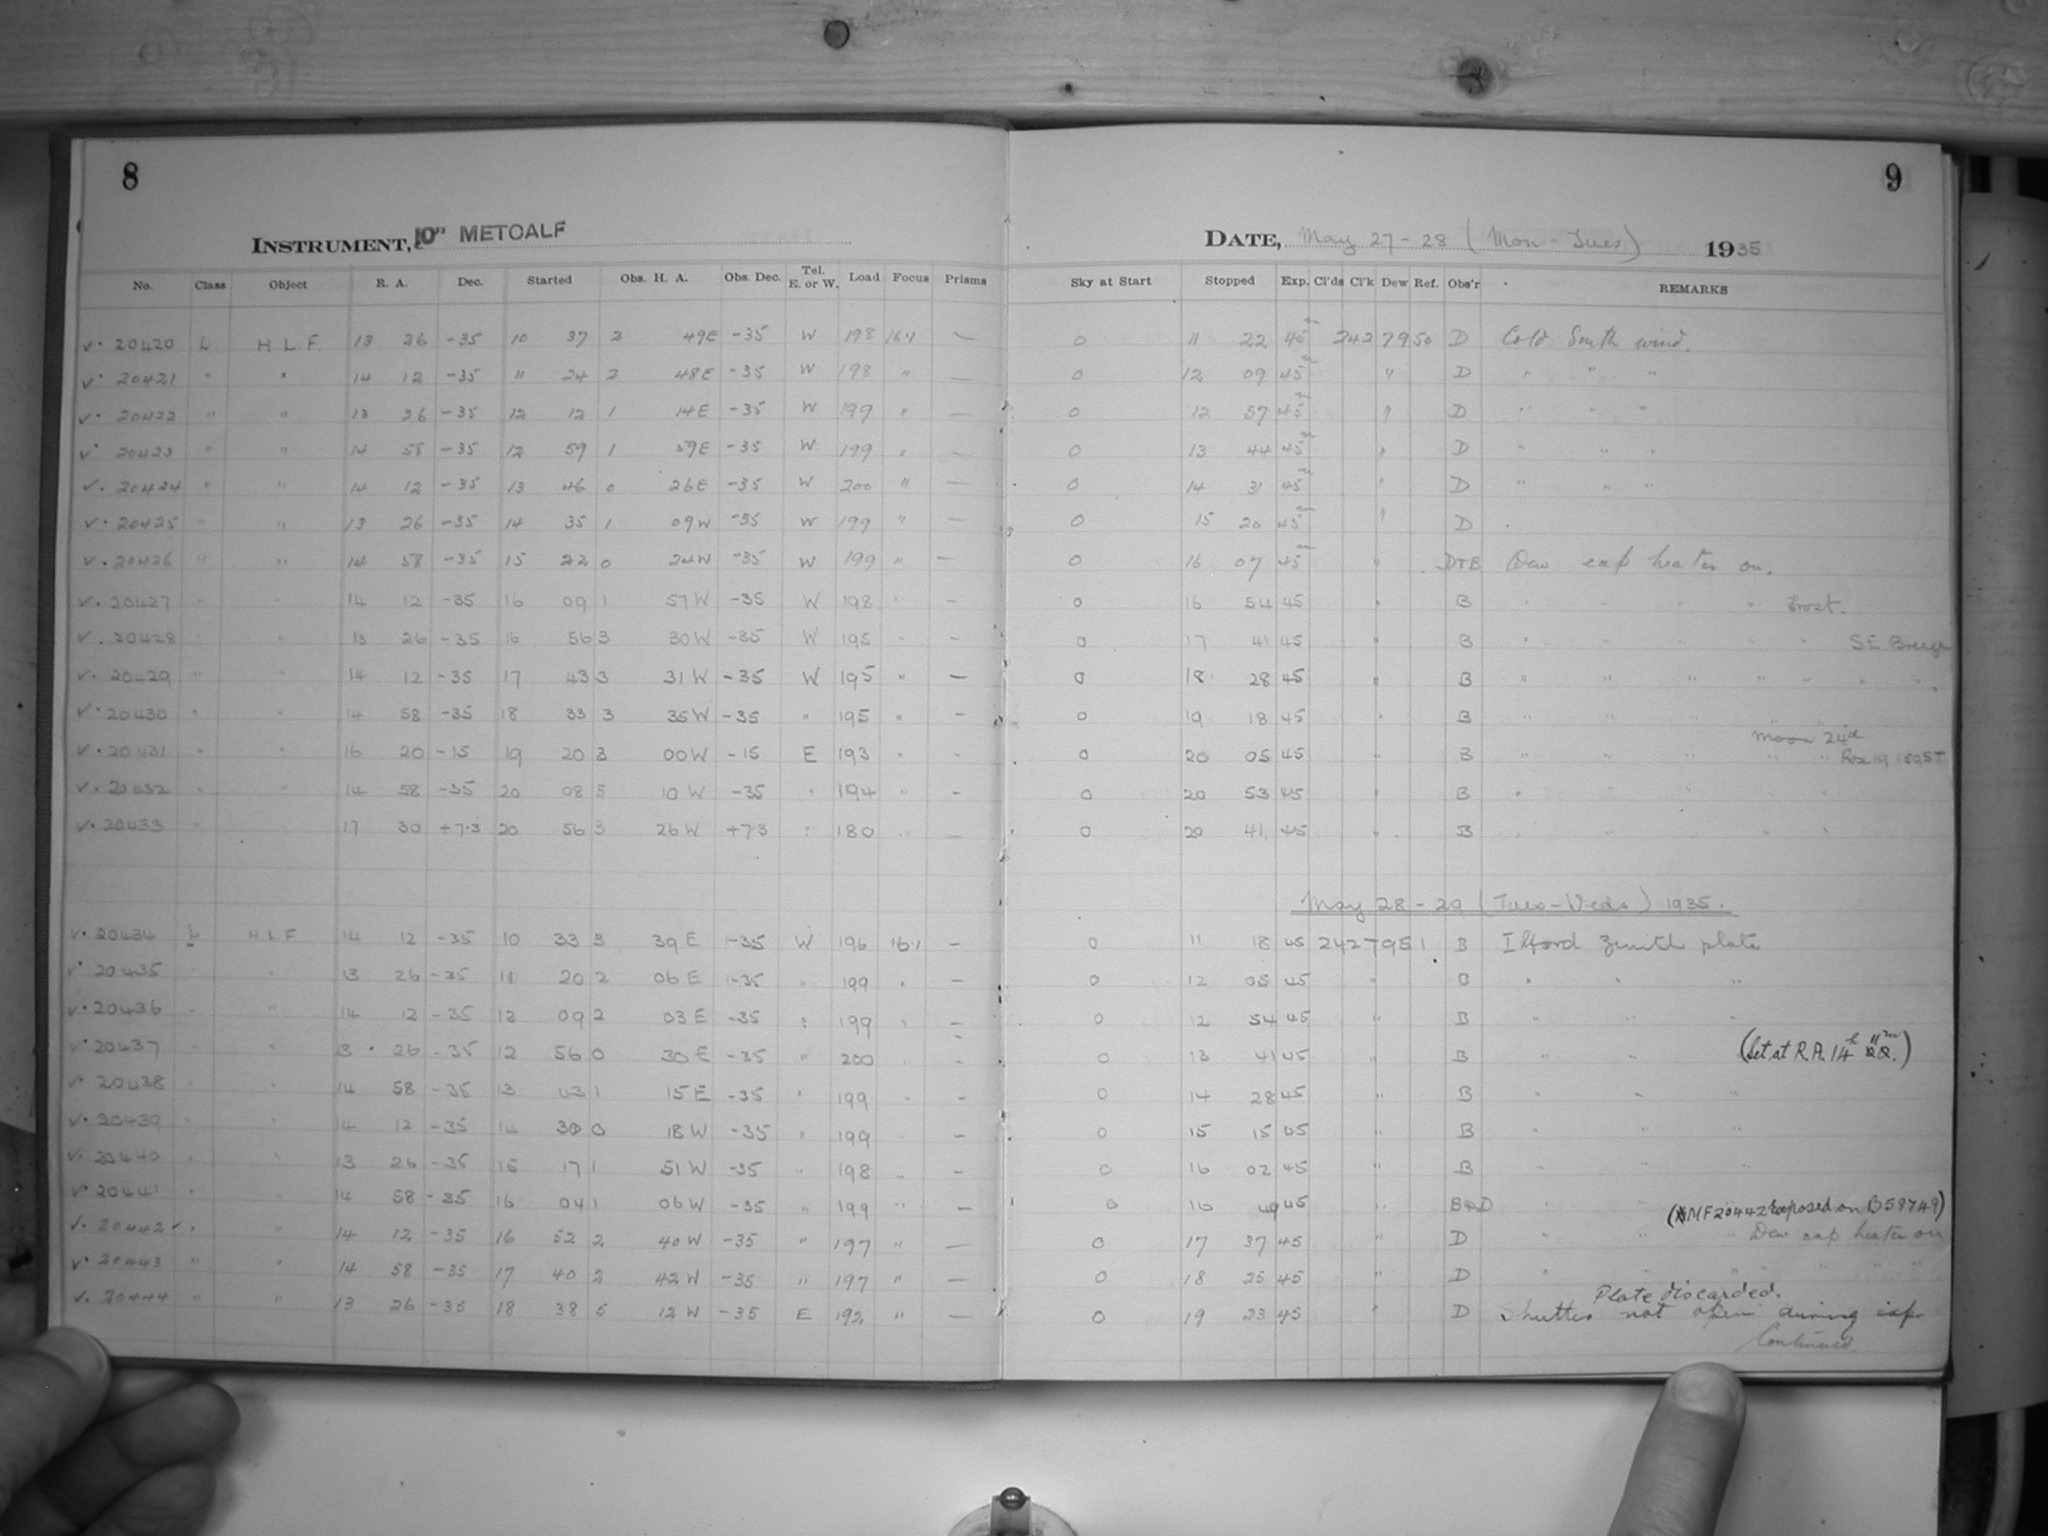 8
9
INSTRUMENT, 10" METCALF
DATE, May 27-28 (Mon-Tues) 1935
No. Class Object R. A. Dec. Started Obs. H. A. Obs. Dec. Tel. E. or W. Load Focus Prisms Sky at Start Stopped Exp. Cl'ds Cl'k Dew Ref. Obs'r REMARKS
v. 20420 L H.L.F. 13 26 -35 10 37 2 49E -35 W 198 16.1 — 0 11 22 45m 242 79 50 D Cold South wind.
v. 20421 " " 14 12 -35 11 24 2 48E -35 W 198 " — 0 12 09 45m " D " " "
v. 20422 " " 13 26 -35 12 12 1 14E -35 W 199 " — 0 12 57 45m " D " " "
v. 20423 " " 14 58 -35 12 59 1 59E -35 W 199 " — 0 13 44 45m " D " " "
v. 20424 " " 14 12 -35 13 46 0 26E -35 W 200 " — 0 14 31 45m " D " " "
v. 20425 " " 13 26 -35 14 35 1 09W -35 W 199 " — 0 15 20 45m " D
v. 20426 " " 14 58 -35 15 22 0 24W -35 W 199 " — 0 16 07 45m " D+B Dew cap heater on.
v. 20427 " " 14 12 -35 16 09 1 57W -35 W 198 " — 0 16 54 45 " B " " " " Frost.
v. 20428 " " 13 26 -35 16 56 3 30W -35 W 195 " — 0 17 41 45 " B " " " " " SE Breeze
v. 20429 " " 14 12 -35 17 43 3 31W -35 W 195 " — 0 18 28 45 " B " " " " " " "
v. 20430 " " 14 58 -35 18 33 3 35W -35 " 195 " — 0 19 18 45 " B " " " " "
Moon 24d
v. 20431 " " 16 20 -15 19 20 3 00W -15 E 193 " — 0 20 05 45 " B " " " " "
v. 20432 " " 14 58 -35 20 08 5 10W -35 " 194 " — 0 20 53 45 " B " " " " "
v. 20433 " " 17 30 +7.3 20 56 3 26W +73 " 180 " — 0 20 41 45 " B " " " " "
May 28-29 (Tues-Weds) 1935.
v. 20434 L H.L.F 14 12 -35 10 33 3 39E -35 W 196 16.1 — 0 11 18 45 242 79 51 B Ilford Zenith plate
v. 20435 " " 13 26 -35 11 20 2 06E -35 " 199 " — 0 12 05 45 " B " " "
v. 20436 " " 14 12 -35 12 09 2 03E -35 " 199 " — 0 12 54 45 " B " " "
v. 20437 " " 13 26 -35 12 56 0 30E -35 " 200 " — 0 13 41 45 " B " " (Set at R.A. 14h 11m.)
v. 20438 " " 14 58 -35 13 43 1 15E -35 " 199 " — 0 14 28 45 " B " " "
v. 20439 " " 14 12 -35 14 30 0 18W -35 " 199 " — 0 15 15 05 " B " " "
v. 20440 " " 13 26 -35 15 17 1 51W -35 " 198 " — 0 16 02 45 " B " " "
v. 20441 " " 14 58 -35 16 04 1 06W -35 " 199 " — 0 16 49 45 " B+D " " "
(MF20442 Exposed on B59749)
v. 20442 " " 14 12 -35 16 52 2 40W -35 " 197 " — 0 17 37 45 " D " " " Dew cap heater on
v. 20443 " " 14 58 -35 17 40 2 42W -35 " 197 " — 0 18 25 45 " D " " " " " "
Plate discarded.
v. 20444 " " 13 26 -35 18 38 5 12W -35 E 192 " — 0 19 23 45 " D Shutter not open during exp.
Continued